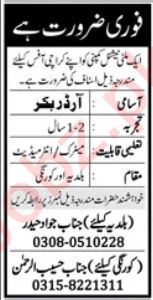 فوری ضرورت ہے
ایک ملٹی نیشنل کمپنی کو اپنے کراچی آفس کیلئے
مندرجہ ذیل اسٹاف کی ضرورت ہے
آسامی آرڈر بکر
تجربہ 1-2 سال
تعلیمی قابلیت: میٹرک/انٹرمیڈیٹ
مقام بلدیہ اور کورنگی
خواہشمند حضرات مندرجہ ذیل نمبرز پر رابطہ کریں
(بلدیہ کیلئے) جناب جواد حیدر
0308-0510228
(کورنگی کیلئے) جناب حسیب الرحمٰن
0315-8221311